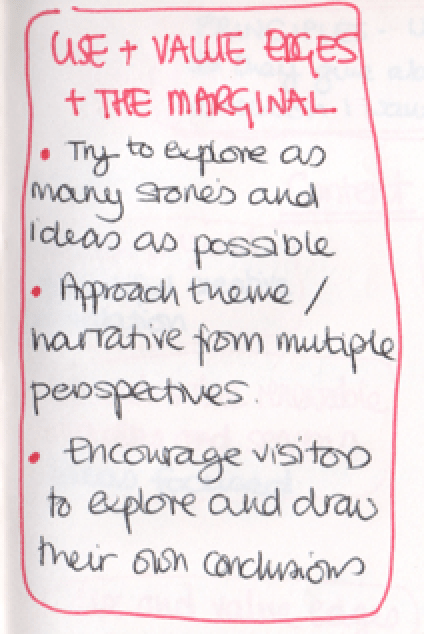 USE + VALUE EDGES
+ THE MARGINAL
• Try to explore as
many stories and
ideas as possible
• Approach theme /
narrative from multiple
perspectives.
• Encourage visitors
to explore and draw
their own conclusions